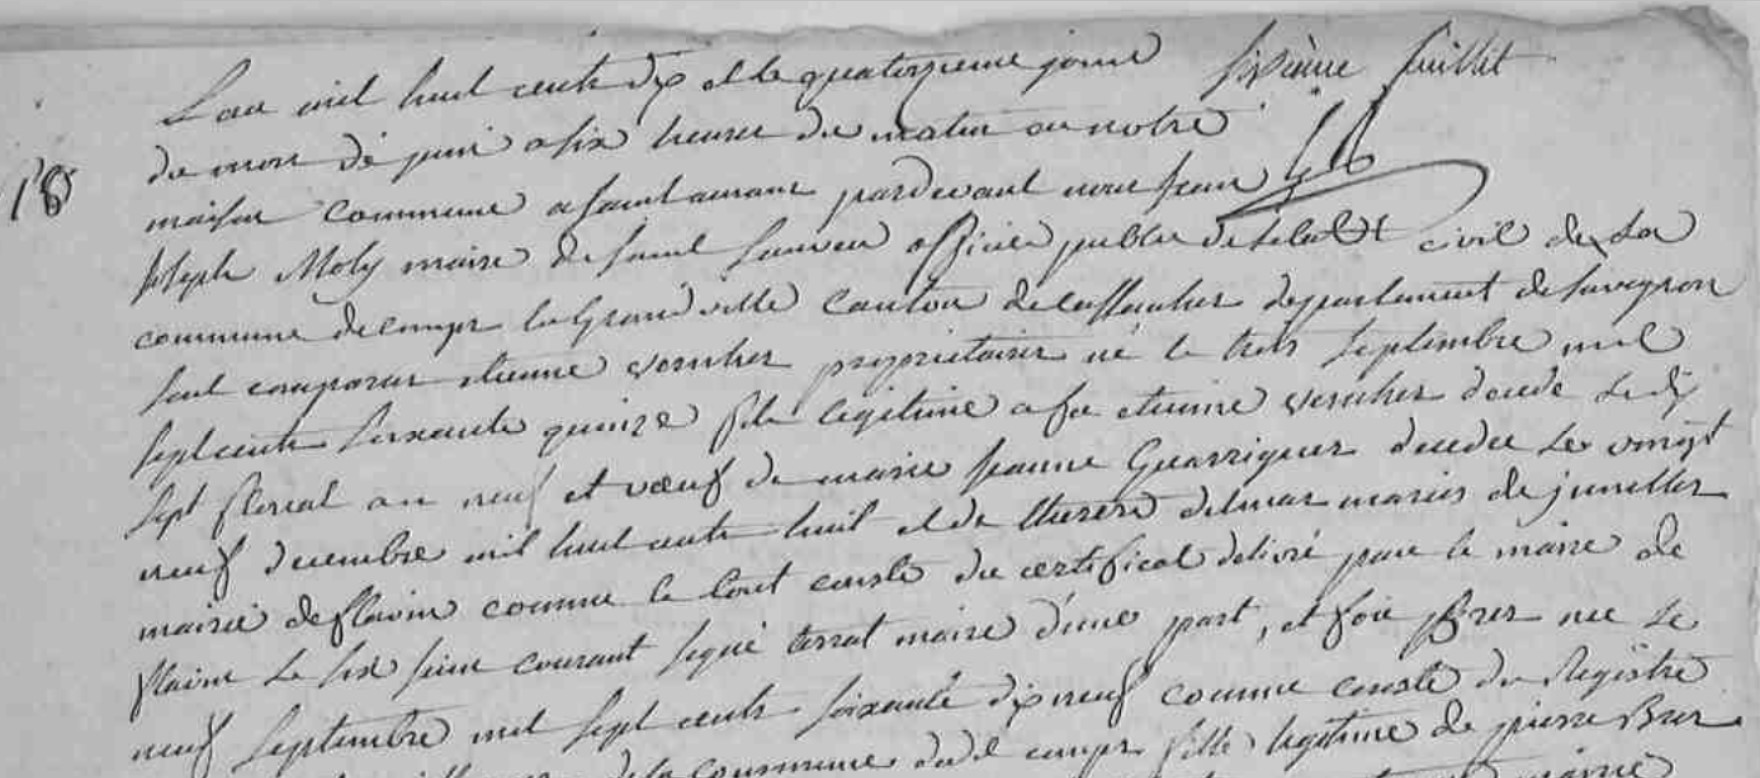 L'an mil huit cents dix et le quatorzieme jour sixième feuillet
du mois de juin a six heures du matin en notre
18
maison commune a saint amans pardevant nous Jean
Joseph Moly maire de saint Sauveur officier public de l'etat civil de la
commune de comps la Grand ville canton de cassanhes departement de laveyron
sont comparus etienne vernhes propriétaire né le trois septembre mil
sept cents soixante quinze fils legitime a feu etienne vernhes décédé le dix
sept floreal an neuf et veuf de marie Jeanne Guarrigues décédée le vingt
neuf decembre mil huit cents huit et de therese delmas mariés de
mairie de flavin comme le tout conste du certificat delivré par le maire de
flavin le six juin courant signé terral maire d'une part, et foie Bres née le
neuf septembre mil sept cents soixante dix neuf comme conste du Registre
de la commune dud. comps fille legitime de pierre Bres
mairie